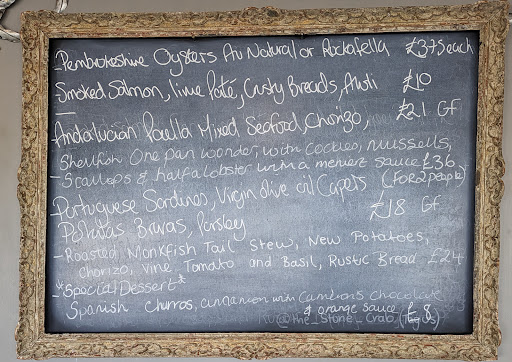 - Pembrokeshire Oysters Au Natural or Rockafella £3.75 each
Smoked Salmon, lime Paté, Crusty Breads, £10
Andorlucian Paella Mixed Seafood, Chorizo, £21 GF
Shellfish One pan wonder, with cockles, mussells,
- Scallops & half a lobster with a meniere sauce £36 (For 2 people)
Portuguese Sardines, Virgin olive oil Capers
Patatas Bravas, Parsley £18 GF
- Roasted Monkfish Tail Stew, New Potatoes,
Chorizo, Vine Tomato and Basil, Rustic Bread £24
*Special Dessert*
Spanish churros, cinnamon with chocolate
& orange sauce £8
@The_Stone_Crab,